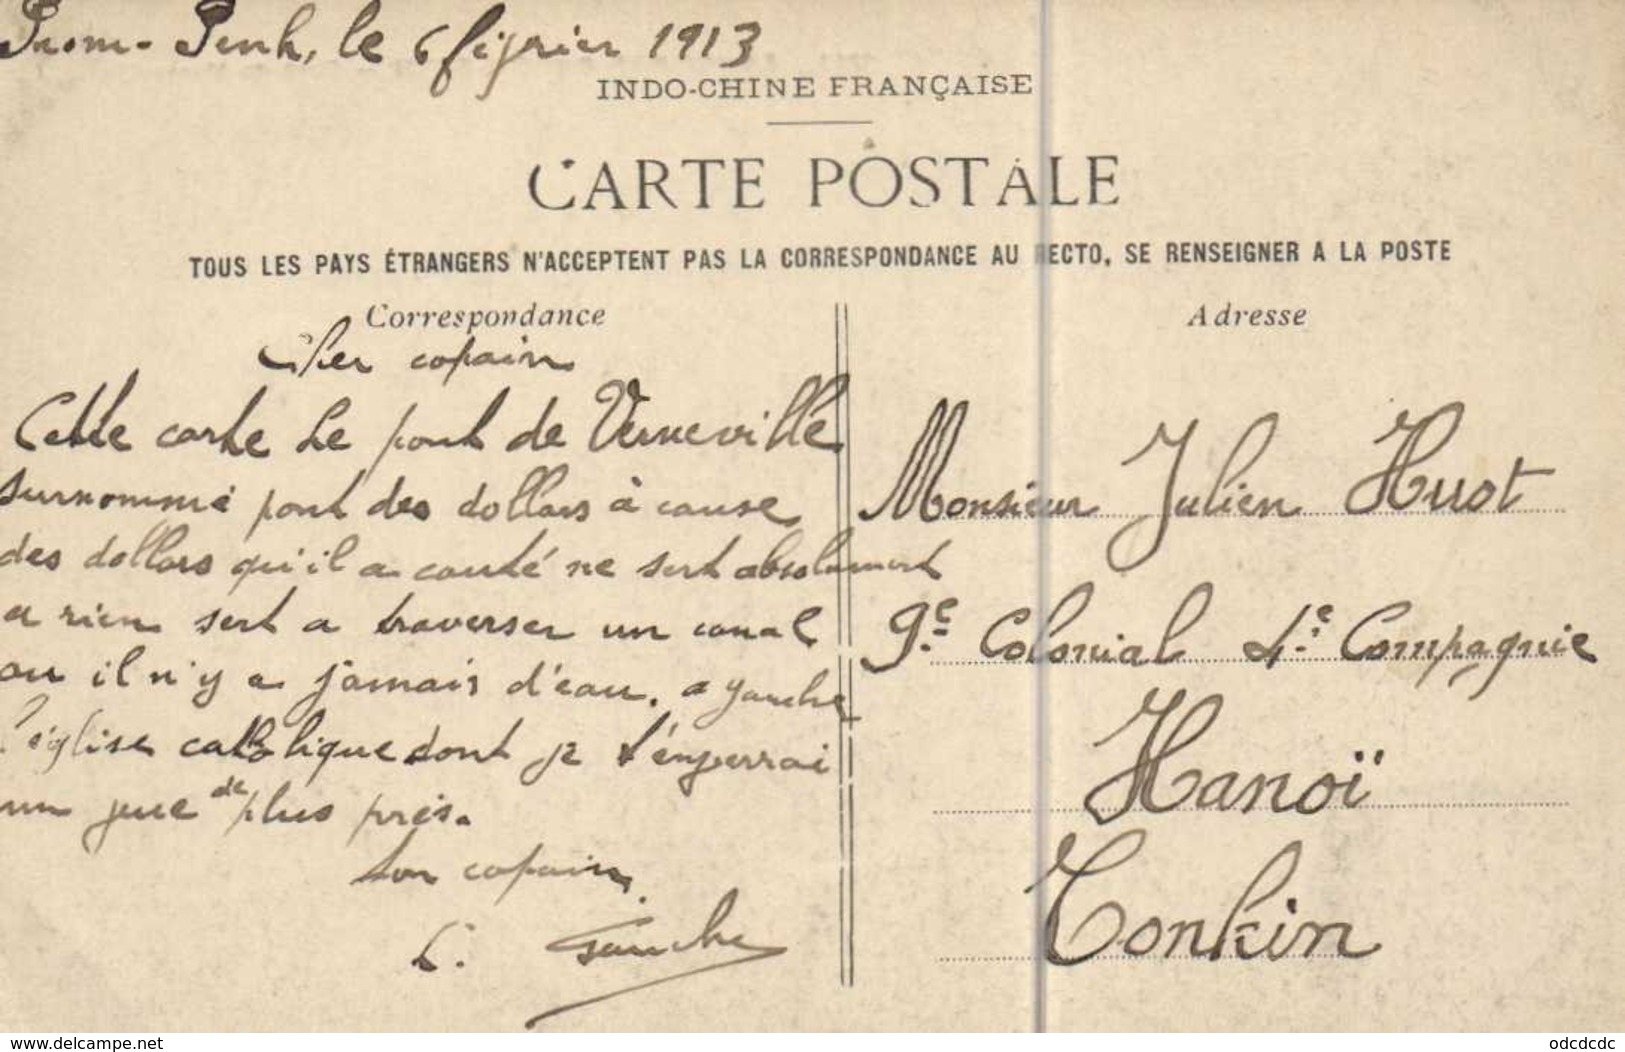 Pnom-Penh, le 6 février 1913
INDO-CHINE FRANÇAISE
CARTE POSTALE
TOUS LES PAYS ÉTRANGERS N'ACCEPTENT PAS LA CORRESPONDANCE AU RECTO, SE RENSEIGNER A LA POSTE
Correspondance
Cher copain
Cette carte Le pont de Verneville
surnommé pont des dollars à cause
des dollars qu'il a couté ne sert absolument
a rien sert a traverser un canal
ou il n'y a jamais d'eau. a gauche
l'église catholique dont je t'enverrai
une vue de plus près.
Ton copain.
Adresse
Monsieur Julien Huot
9e Colonial 4e Compagnie
Hanoï
Tonkin
www.delcampe.net
odcdcdc